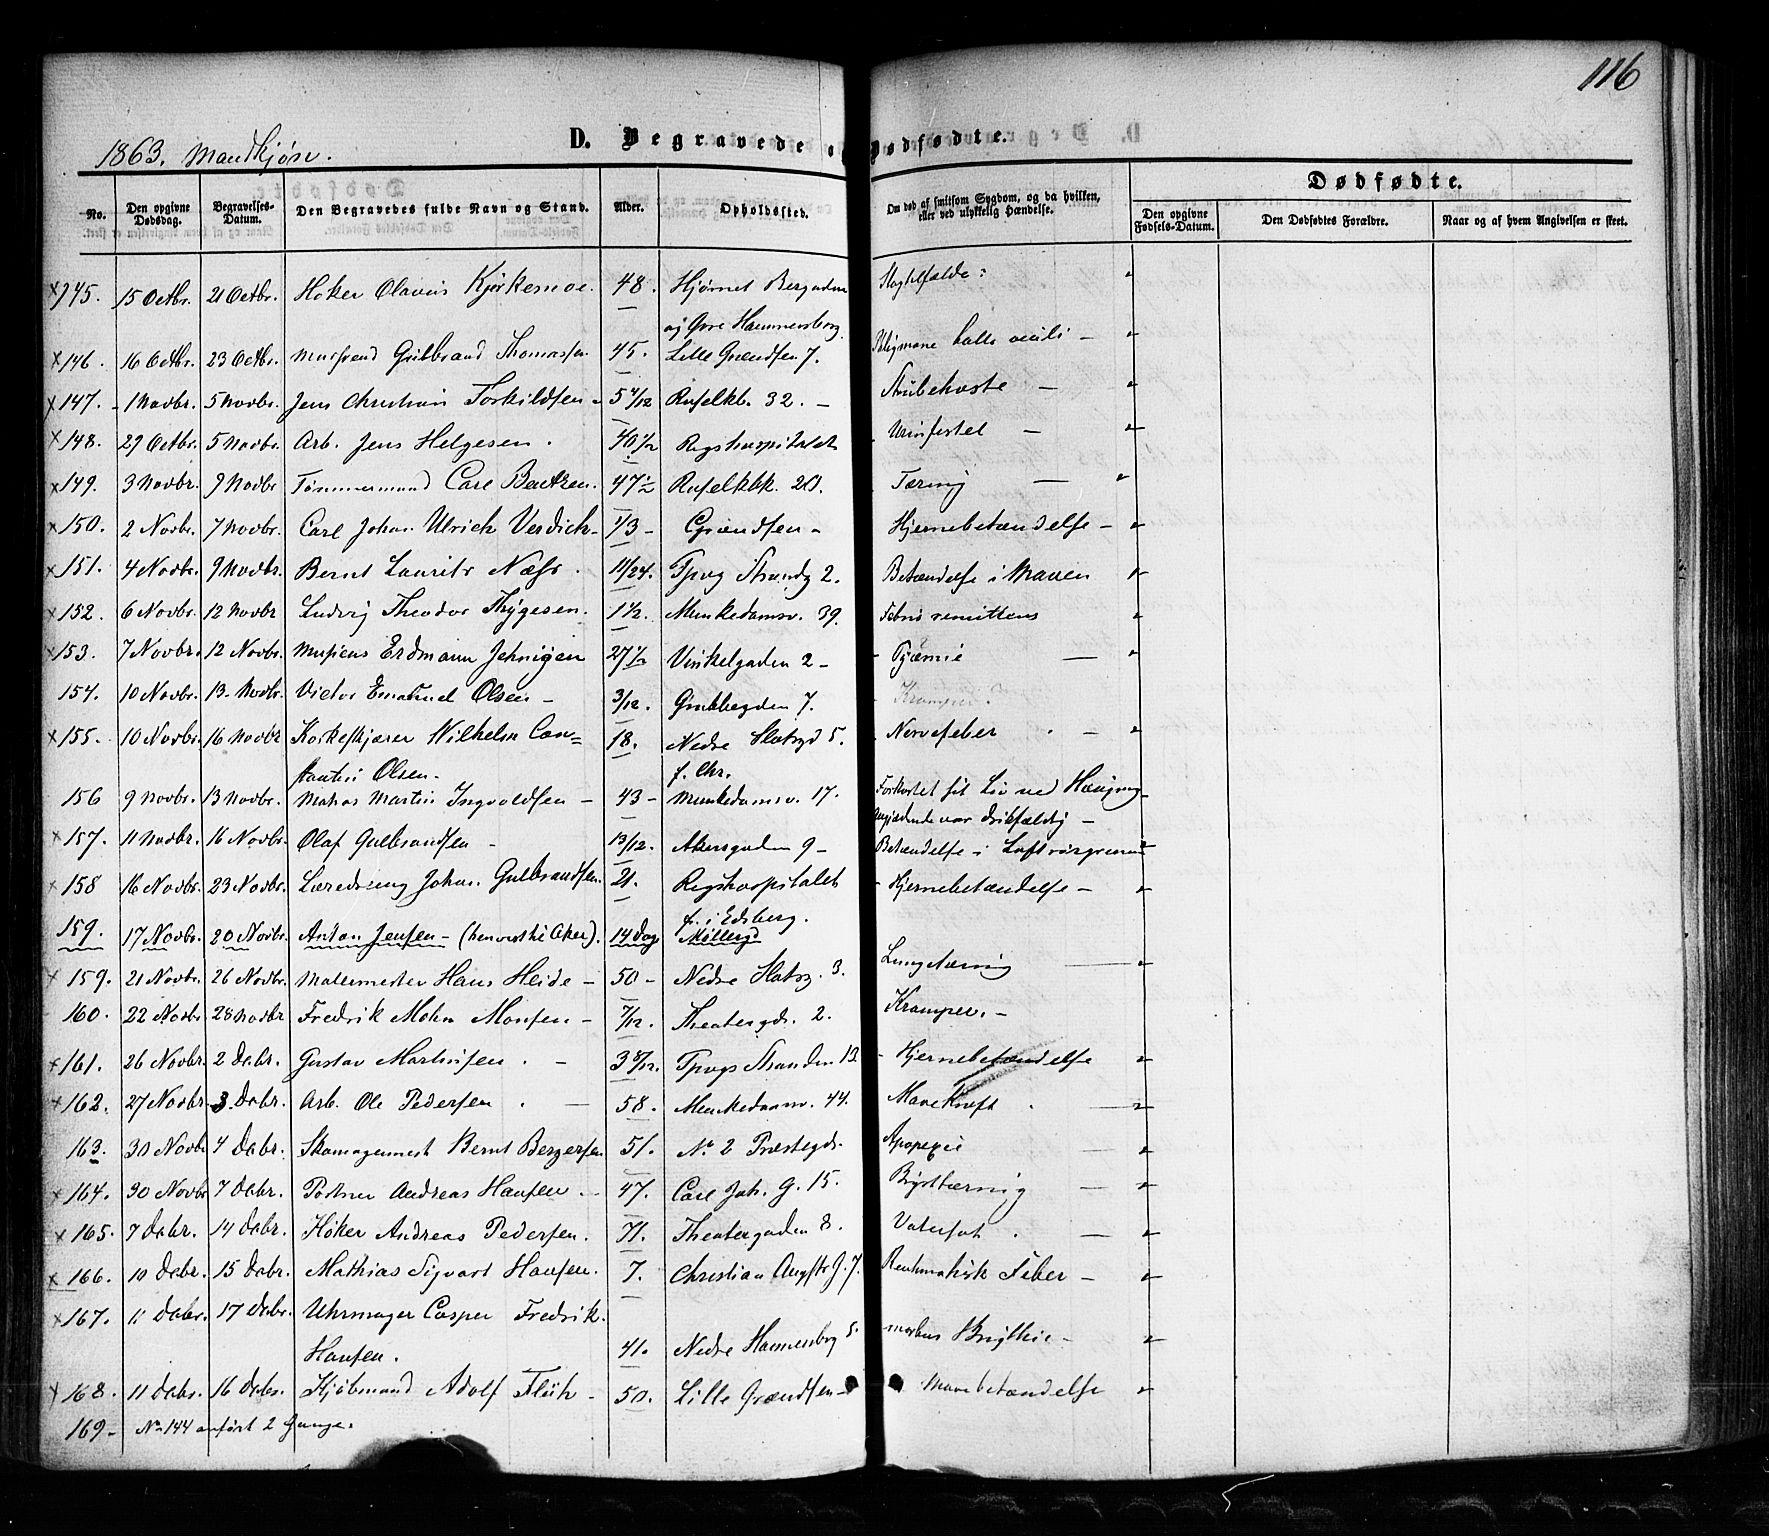 116
1863. Mandkjøn.
D. Begravede o Dødfødte.
No.
Den opgivne Dødsdag.
Begravelses-Datum.
Den Begravedes fulde Navn og Stand.
Alder.
Opholdssted.
Om død af smitsom Sygdom, og da hvilken, eller ved ulykkelig Hændelse.
Dødfødte.
Den opgivne Fødsels-Datum.
Den Dødfødtes Forældre.
Naar og af hvem Angivelsen er skeet.
145. 15 Octbr. 21 Octbr. Høker Olavus Kjørkemoe. 48. Hjørnet Bergaden
og Øvre Hammersborg.
146. 16 Octbr. 23 Octbr. Gulbrand Thomassen 45. Lille Grændsen 7.
147. 1 Novbr. 5 Novbr. Jens Christian Torkildsen 5 4/12 Ruselkb. 32. Strubehoste
148. 29 Octbr. 5 Novbr. Arb. Jens Helgesen. 40 1/2 Rigshospitalet Urinfistel
149. 3 Novbr. 9 Novbr Tømmermand Carl Bentzen. 47 1/2 Ruselkbk. 20. Tæring
150. 2 Novbr. 7 Novbr. Carl Johan Ulrich Verdich 1/3 Grændsen Hjernebetændelse
151. 4 Novbr. 9 Novbr. Bernt Laurits Næss. 11/24. Tjuvh Strandg 2. Betændelse i Maven
152. 6 Novbr. 12 Novbr Ludvig Theodor Thygesen. 1 1/2. Munkedamsv. 39. Febris remittens
153. 7 Novbr. 12 Novbr. Musicus Erdmann Jehnigen 27 1/2 Vinkelgaden 2 Pyæmie
154. 10 Novbr. 13. Novbr. Victor Emanuel Olsen 3/12. Grubbegden 7. Kramper.
155. 10 Novbr. 16 Novbr Korkeskjærer Wilhelm Con= 18. Nedre Slotsgd 5. Nervefeber
stantin Olsen. f. Chr.
156 9 Novbr. 13 Novbr. Martin Ingvoldsen 43 Munkedamsv. 17. Forkortet sit Liv ved Hængning
Angjældende var drikfældig
157. 11 Novbr. 16 Novbr. Olaf Gulbrandsen 13/12. Akersgaden 9 Betændelse i Luftrørgrenene
158 16 Novbr. 23 Novbr. Læredreng Johan Gulbrandsen. 21. Rigshospitalet Hjernebetændelse
f. i Edsberg.
159. 17 Novbr. 20 Novbr. Anton Jensen (henvist til Aker). 14 Dag Møllergd
159. 21 Novbr. 26 Novbr. Malermester Hans Heide 50 Nedre Slotsg. 3. Lungetæring
160. 22 Novbr 28 Novbr Fredrik Mohn Monsen 7/12. Theatergd. 2. Kramper.
161. 26 Novbr. 2 Debr. Gustav Martinsen. 3 8/12. Tjuvh Stranden 13. Hjernebetændelse
162. 27 Novbr. 3 Debr. Arb. Ole Pedersen. 58. Munkedamsv. 44. Mavekræft.
163. 30 Novbr 4 Debr. Skomagermest Bernt Bergersen 51. No 2 Præstegd. Apoplexie
164. 30 Novbr 7 Debr. Andreas Hansen. 47. Carl Joh. G. 15. Brysttæring
165. 7 Debr. 14 Debr. Høker Andreas Pedersen. 71. Theatergaden 8. Vatersot.
166. 10 Debr. 15 Debr. Mathias Sigvart Hansen. 7. Christian Augsts G. 7. Reuhmatisk Feber
167. 11 Debr. 17 Debr. Uhrmager Casper Fredrik
Hansen. 41. Nedre Hammersborg 5. morbus Brigthii
168. 11 Debr. 16 Debr. Kjøbmand Adolf 50. Lille Grændsen Mavebetændelse
169 No 144 anført 2 Gange.